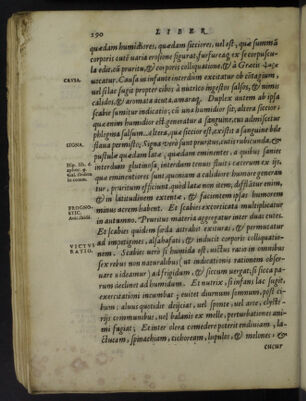 290 LIBER
quædam humidiores, quædam sicciores, uel est, quæ summã
corporis cutẽ uaria erosione figurat, furfureaq́; ex se corpuscu-
la edit, cũ pruritu, & corporis colliquatione, & à Græcis
CAVSA. uocatur. Causa in infante interdum excitatur ob cõtagium,
uel si lac sugit propter cibos à nutrice ingestos salsos, & nimis
calidos, & aromata acuta, amaraq́;. Duplex autem ab ipsa
scabie sumitur indicatio, cũ una humidior sit, altera siccior;
quæ enim humidior est generatur à sanguine, cui admiscetur
phlegma salsum. altera, quæ siccior est, existit à sanguine bile
SIGNA. ustaua permisto. Signa verò sunt pruritus, cutis rubicunda, &
pustulæ quædam latæ, quædam eminentes, & quæ saniem
interdum glutinosam, interdum tenuis fluit: cæterum ex ijs,
quæ eminentiores sunt quoniam à calidiore humore generan
tur, pruritum efficiunt, quòd latæ non item, diffustæ enim,
& in latitudinem extentæ, & facientem ipsas humorem
PROGNO- minus acrem habent. Et scabies excorticata multiplicatur
STIC. in autumno. Pruritus materia aggregatur inter duas cutes.
Et scabies quidem sorda astralio exituras, & permutatur
ad impetigines, alsahafati, & inducit corporis colliquatio-
VICTVS nem. Scabies verò si humida est, uictus ratio in omnibus
RATIO. sex rebus non naturalibus (ut indicationis rationem obser-
uare uideamur) ad frigidum, & siccum uergat; si sicca pa-
rum declinet ad humidum. Et nutrix, si infans lac sugit,
exercitationi incumbat; euitet diurnum somnum, post ci-
bum, aluus quotidie deijciat, uel sponte, uel arte, clyste-
ribus communibus, uel balanis ex melle, perturbationes ani-
mi fugiat; Et inter olera comedere poterit endiuiam, la-
ctucam, spinachiam, cichoream, lupulos, & melones, &
cucur